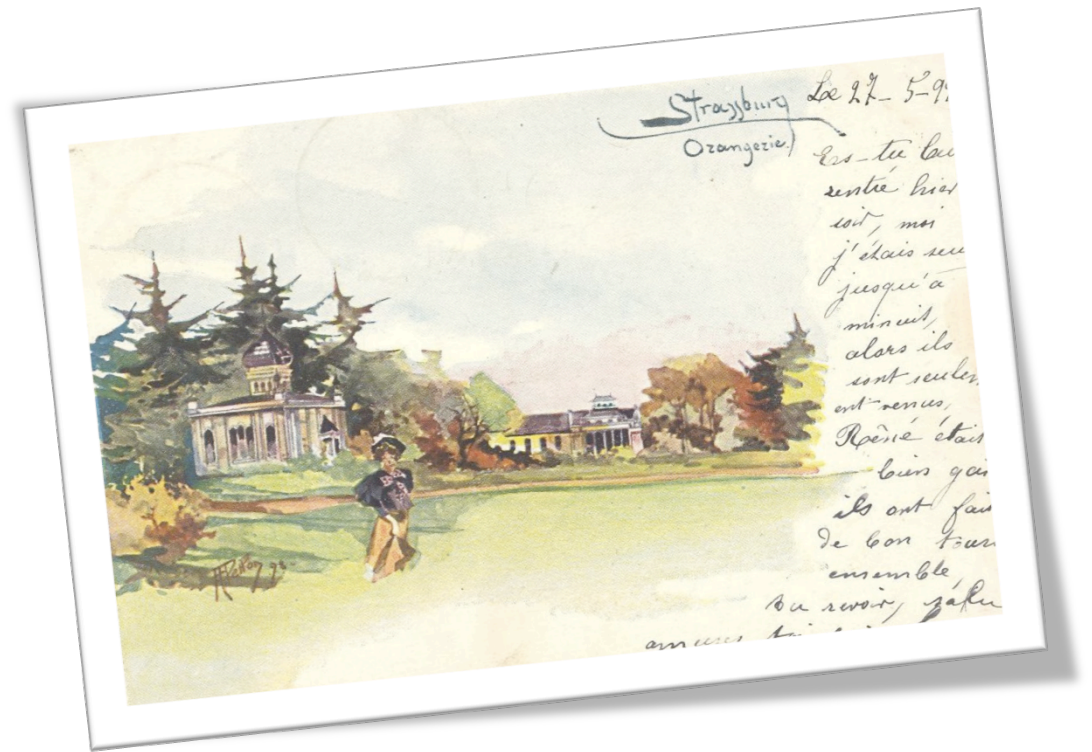 Strassburg
Orangerie.
Le 27-5-9
Es-tu
rentré hier
soir, moi
j'étais seu
jusqu'à
minuit,
alors ils
sont seulem
ent venus,
René était
bien gai
ils ont fai
de bon tour
ensemble,
Au revoir,